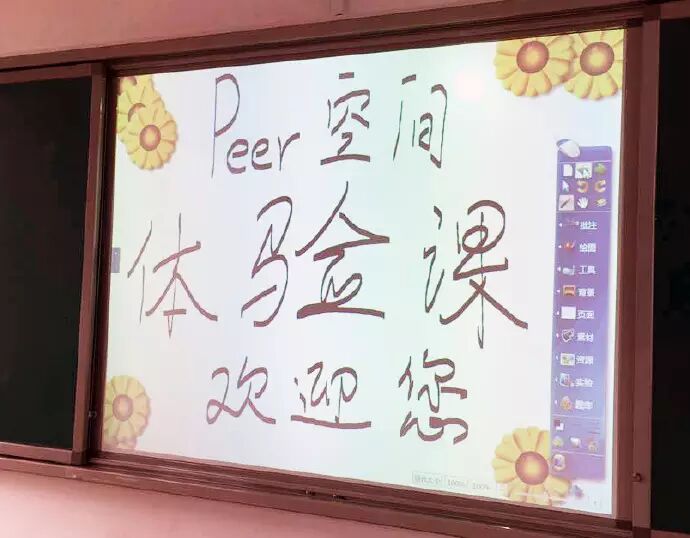 Peer空间
体验课
欢迎您
批注
绘图
工具
背景
页面
素材
资源
实验
题库
100%
100%